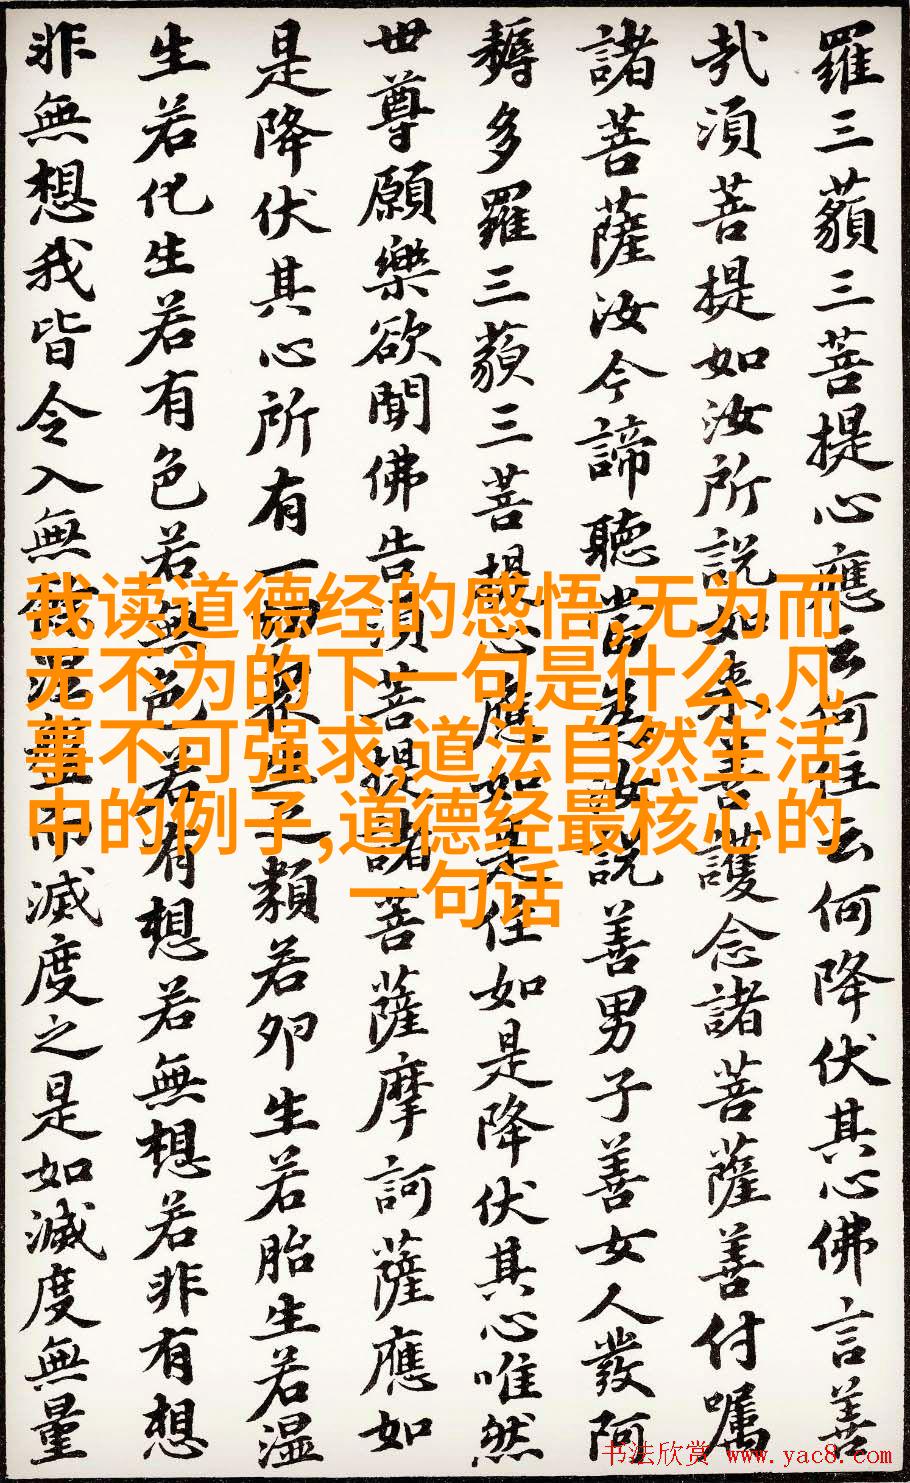 羅三藐三菩提心應云何住云何降伏其心佛言善
哉須菩提如汝所說如來善護念諸菩薩善付嘱
諸菩薩汝今諦聽當為汝說善男子善女人發阿
耨多羅三藐三菩提心應如是住如是降伏其心唯然
世尊願樂欲聞佛告須菩提諸菩薩摩訶薩應如
是降伏其心所有一切衆生之類若卵生若胎生若湿
生若化生若有色若無色若有想若無想若非有想
非無想我皆令入無餘涅槃而滅度之是如滅度無量
我读道德经的感悟,无为而
无不为的下一句是什么,凡
事不可强求,道法自然生活
中的例子,道德经最核心的
一句话
书法欣赏 www.yac8.com